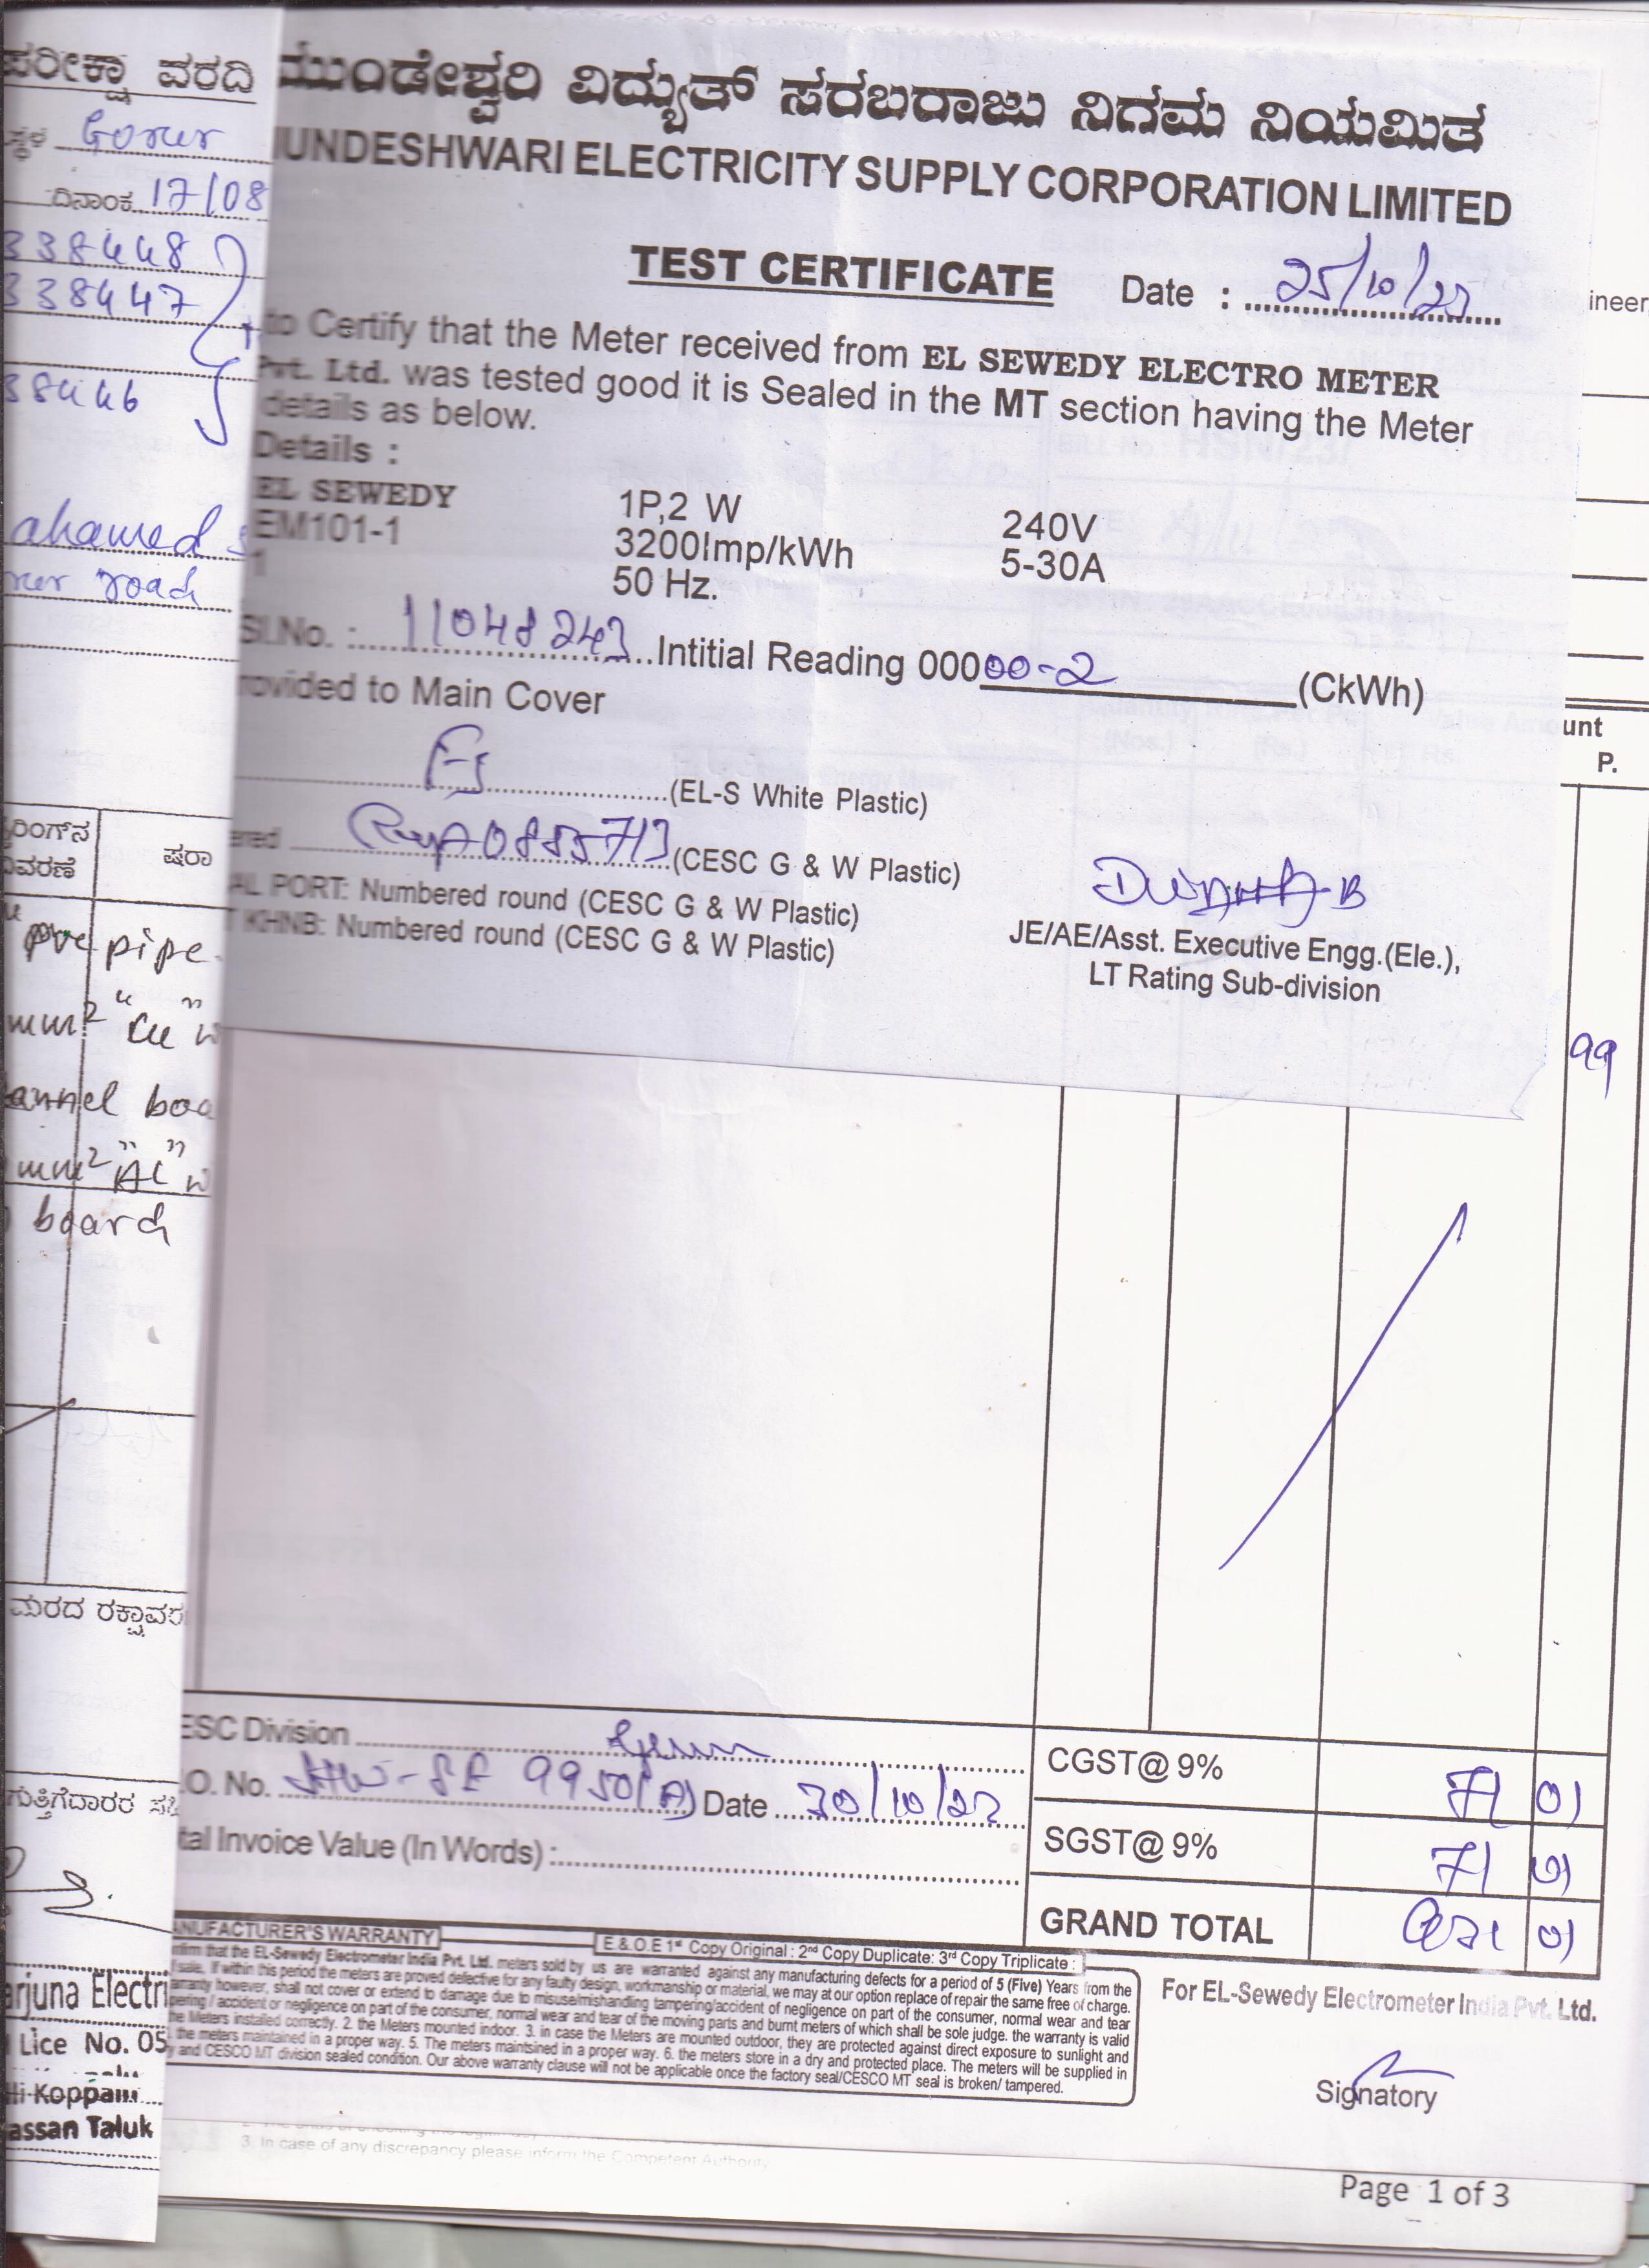 ಪರೀಕ್ಷಾ ವರದಿ
ಸ್ಥಳ Gorur
ದಿನಾಂಕ 17/08
338448
338447
38446
ahamed
road
ರಿಂಗ್‌ನ
ವಿವರಣೆ
ಷರಾ
pvc pipe
mm² "cu" w
annel boa
mm² "AL" w
board
ಮರದ ರಕ್ಷಾವರ
ಗುತ್ತಿಗೆದಾರರ ಸ
arjuna Electri
Lice No. 05
li Koppalu
assan Taluk
ಮುಂಡೇಶ್ವರಿ ವಿದ್ಯುತ್ ಸರಬರಾಜು ನಿಗಮ ನಿಯಮಿತ
UNDESHWARI ELECTRICITY SUPPLY CORPORATION LIMITED
TEST CERTIFICATE Date : 25/10/23
to Certify that the Meter received from EL SEWEDY ELECTRO METER
Pvt. Ltd. was tested good it is Sealed in the MT section having the Meter
details as below.
Details :
EL SEWEDY 1P,2 W 240V
EM101-1 3200Imp/kWh 5-30A
1 50 Hz.
Sl.No. : 11048243 Intitial Reading 00000-2 (CkWh)
rovided to Main Cover
(EL-S White Plastic)
ered 0885713 (CESC G & W Plastic)
AL PORT: Numbered round (CESC G & W Plastic)
T KHNB: Numbered round (CESC G & W Plastic)
JE/AE/Asst. Executive Engg.(Ele.),
LT Rating Sub-division
ineer
unt
P.
99
ESC Division
.O. No. 9950(A) Date 30/10/23
tal Invoice Value (In Words) :
CGST@ 9% 71 01
SGST@ 9% 71 01
GRAND TOTAL 01
ANUFACTURER'S WARRANTY
E.& O.E 1st Copy Original : 2nd Copy Duplicate: 3rd Copy Triplicate :
nfirm that the EL-Sewedy Electrometer India Pvt. Ltd. meters sold by us are warranted against any manufacturing defects for a period of 5 (Five) Years from the
f sale, If within this period the meters are proved defective for any faulty design, workmanship or material, we may at our option replace of repair the same free of charge.
arranty however, shall not cover or extend to damage due to misuse/mishandling tampering/accident of negligence on part of the consumer, normal wear and tear
pering / accident or negligence on part of the consumer, normal wear and tear of the moving parts and burnt meters of which shall be sole judge. the warranty is valid
he Meters installed correctly. 2. the Meters mounted indoor. 3. in case the Meters are mounted outdoor, they are protected against direct exposure to sunlight and
. the meters maintained in a proper way. 5. The meters maintsined in a proper way. 6. the meters store in a dry and protected place. The meters will be supplied in
y and CESCO MT division sealed condition. Our above warranty clause will not be applicable once the factory seal/CESCO MT seal is broken/ tampered.
For EL-Sewedy Electrometer India Pvt. Ltd.
Signatory
3. In case of any discrepancy please inform the Competent Authority
Page 1 of 3